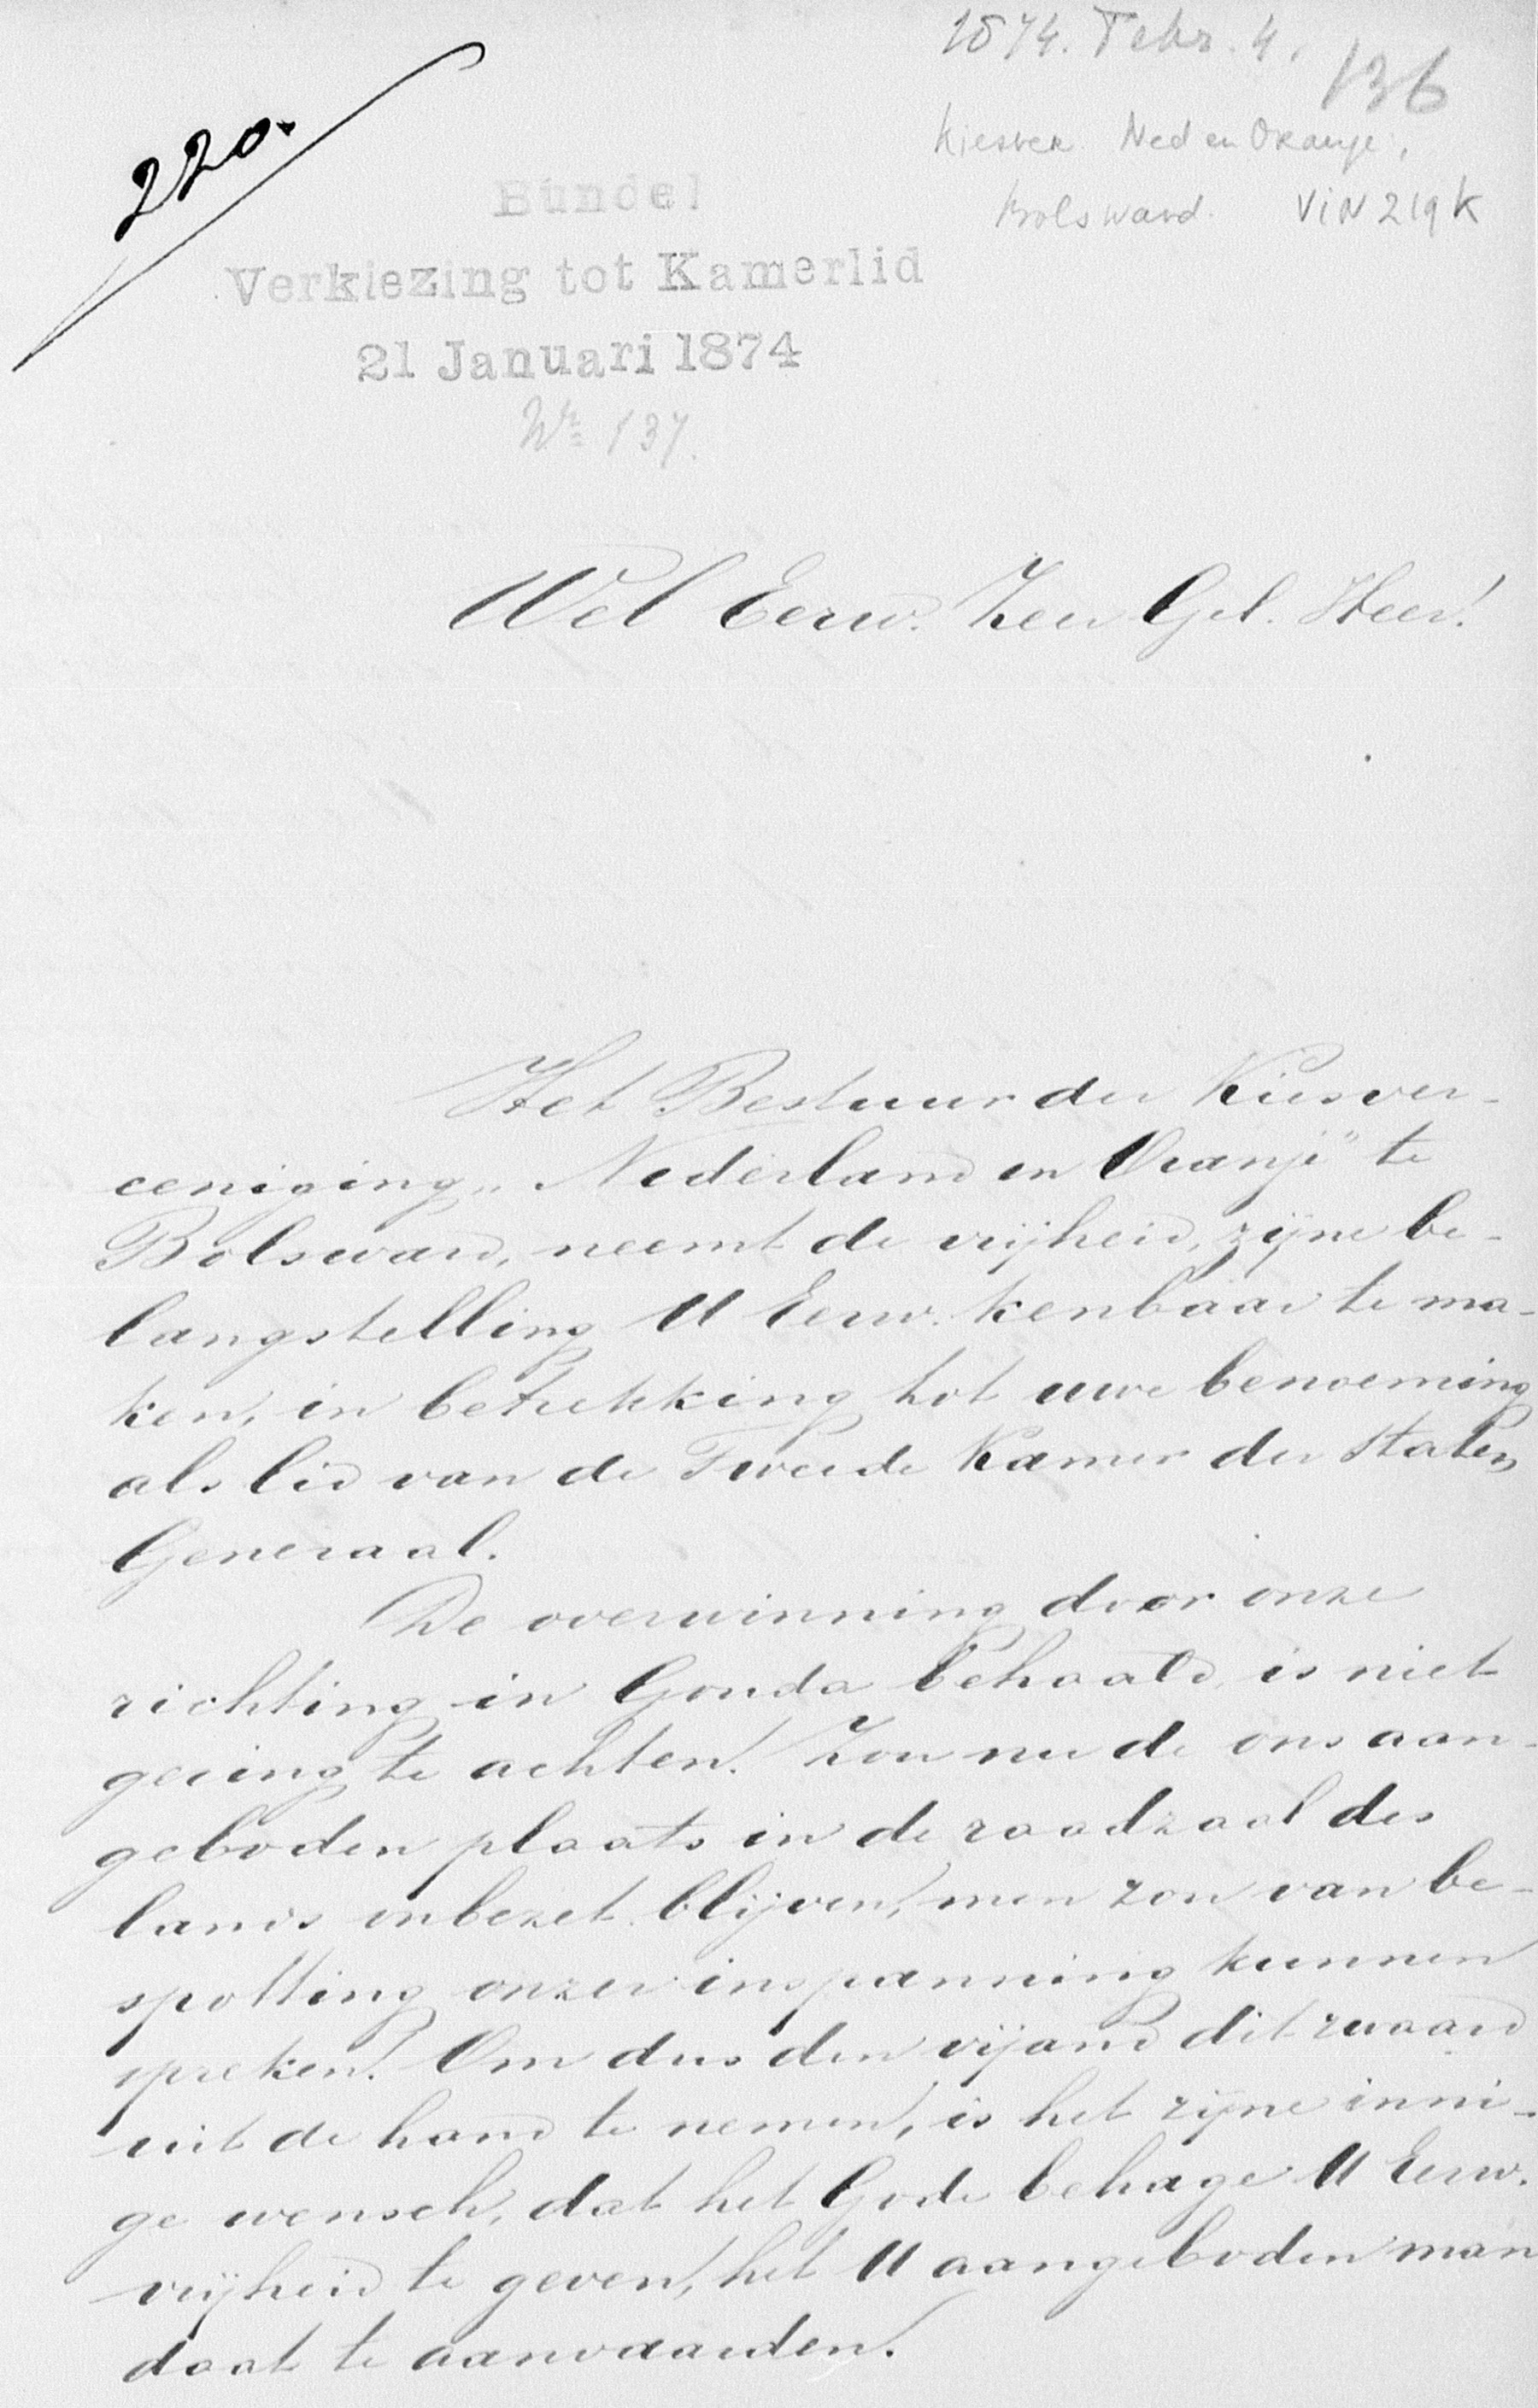 1874. Febr. 4.
136
Kiesver. Ned en Oranje,
Bolsward. VIN 219k
220.
Bundel
Verkiezing tot Kamerlid
21 Januari 1874
No 137.
Wel Eerw. Zeer Gel. Heer!
Het Bestuur der Kiesver-
eeniging „Nederland en Oranje" te
Bolsward, neemt de vrijheid, zijne be-
langstelling U Eerw. kenbaar te ma-
ken, in betrekking tot uwe benoeming
als lid van de Tweede Kamer der Staten
Generaal.
De overwinning door onze
richting in Gouda behaald, is niet
gering te achten. Zou nu de ons aan-
geboden plaats in de raadzaal des
lands onbezet blijven, men zou van be-
spotting onzer inspanning kunnen
spreken. Om dus den vijand dit zwaard
uit de hand te nemen, is het zijne inni-
ge wensch, dat het Gode behage U Eerw.
vrijheid te geven, het U aangeboden man
daat te aanvaarden.